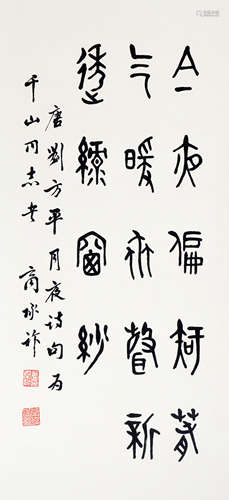 今夜偏知春
气暖虫聲新
透綠窗紗
唐劉方平月夜詩句为
千山同志书 商承祚